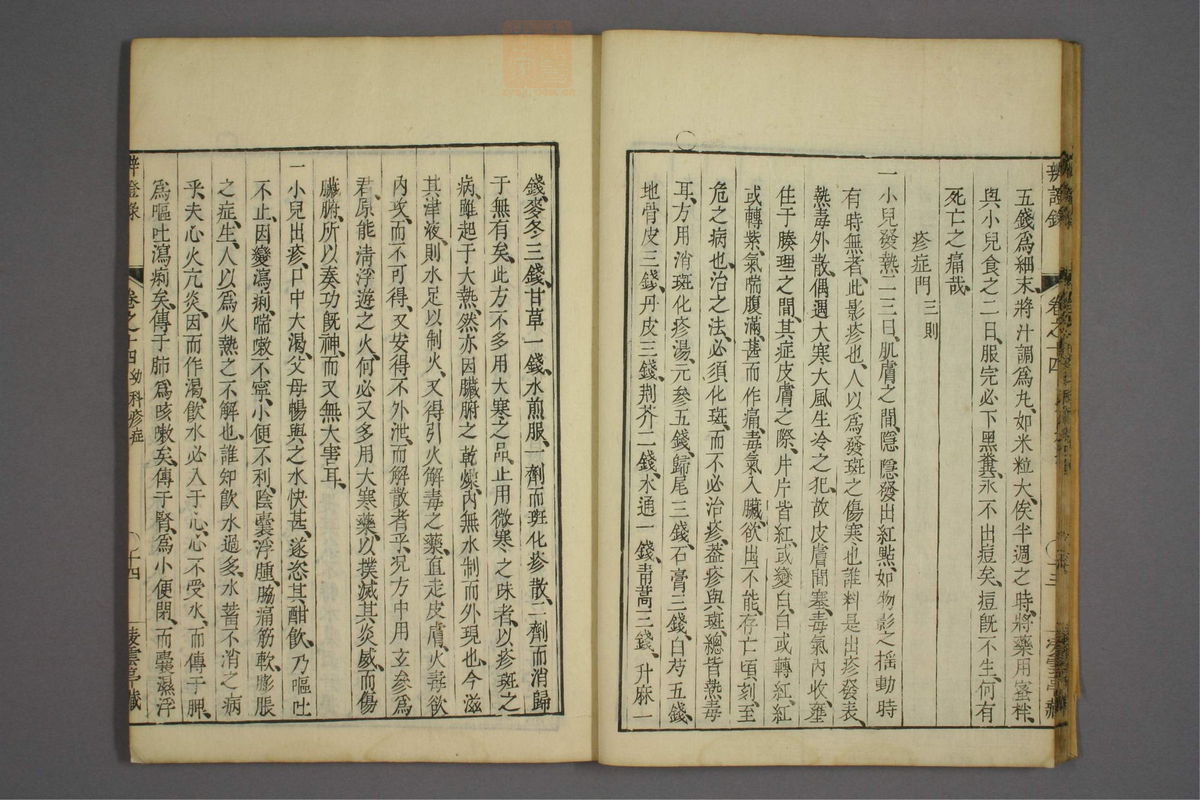 辨證錄 卷之十四
五錢爲細末、將汁調爲丸、如米粒大、俟半週之時、將藥用蜜拌、
與小兒食之二日、服完必下黑糞、永不出痘矣、痘旣不生、何有
死亡之痛哉、
疹症門 三則
一小兒發熱二三日、肌膚之間、隱隱發出紅點、如物影之搖動時
有時無者、此影疹也、人以爲發斑之傷寒也、誰料是出疹發表、
熱毒外散、偶遇大寒大風生冷之犯、故皮膚間塞、毒氣內收、壅
住于腠理之間、其症皮膚之際、片片皆紅、或變白、白或轉紅、紅
或轉紫、氣喘腹滿、甚而作痛、毒氣入臟、欲出不能、存亡頃刻、至
危之病也、治之法、必須化斑、而不必治疹、葢疹與斑、總皆熱毒
耳、方用消斑化疹湯、元參五錢、歸尾三錢、石膏三錢、白芍五錢、
地骨皮三錢、丹皮三錢、荆芥二錢、木通一錢、靑蒿三錢、升麻一
錢、麥冬三錢、甘草一錢、水煎服、一劑而斑化疹散、二劑而消歸
于無有矣、此方不多用大寒之品、止用微寒之味者、以疹斑之
病、雖起于大熱、然亦因臟腑之乾燥、內無水制而外現也、今滋
其津液、則水足以制火、又得引火解毒之藥、直走皮膚、火毒欲
內攻、而不可得、又安得不外泄、而解散者乎、况方中用玄參爲
君、原能淸浮遊之火、何必又多用大寒藥、以撲滅其炎威、而傷
臟腑、所以奏功旣神、而又無大害耳、
一小兒出疹、口中大渴、父母暢與之水快甚、遂恣其酣飮、乃嘔吐
不止、因變瀉痢、喘嗽不寧、小便不利、陰囊浮腫、脇痛筋軟、膨脹
之症、生、人以爲火熱之不解也、誰知飮水過多、水蓄不消之病
乎、夫心火亢炎、因而作渴、飮水必入于心、心不受水、而傳于脾、
爲嘔吐瀉痢矣、傳于肺、爲咳嗽矣、傳于腎、爲小便閉、而囊濕浮
卷之十四 幼科疹症 十四